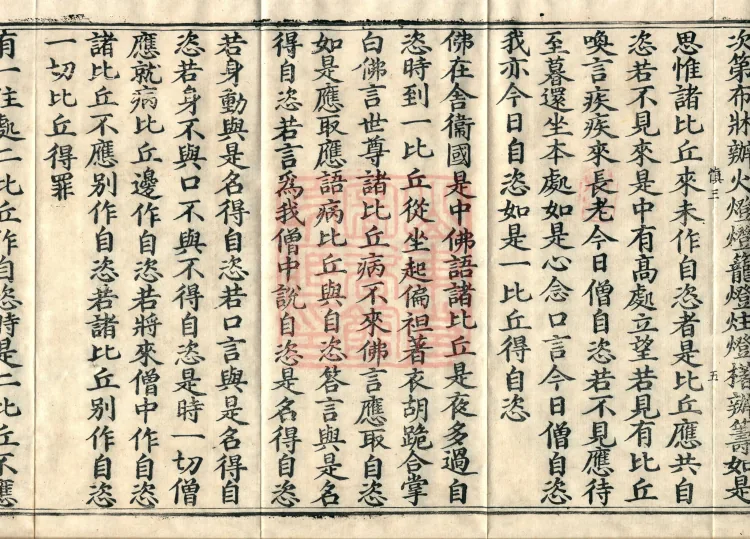 次第布狀辦火燈燈籠燈炷燈㯓辦籌如是
慎三
五
思惟諸比丘來未作自恣者是比丘應共自
恣若不見來是中有髙處立望若見有比丘
喚言疾疾來長老今日僧自恣若不見應待
至暮還坐本處如是心念口言今日僧自恣
我亦今日自恣如是一比丘得自恣
佛在舍衞國是中佛語諸比丘是夜多過自
恣時到一比丘從坐起偏袒著衣胡跪合掌
白佛言世尊諸比丘病不來佛言應取自恣
如是應取應語病比丘與自恣答言與是名
得自恣若言爲我僧中說自恣是名得自恣
若身動與是名得自恣若口言與是名得自
恣若身不與口不與不得自恣是時一切僧
應就病比丘邊作自恣若將來僧中作自恣
諸比丘不應别作自恣若諸比丘别作自恣
一切比丘得罪
有一住處二比丘作自恣時是二比丘不應